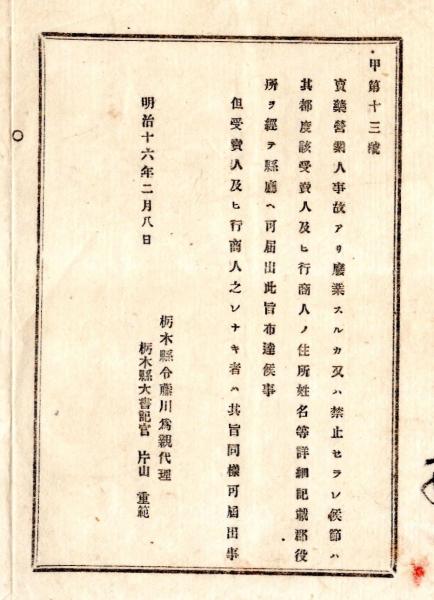 甲第十三號
賣藥營業人事故アリ廢業スルカ又ハ禁止セラレ候節ハ
其都度該受賣人及ヒ行商人ノ住所姓名等詳細記載郡役
所ヲ經テ縣廳ヘ可届出此旨布達候事
但受賣人及ヒ行商人之レナキ者ハ其旨同樣可届出事
明治十六年二月八日
栃木縣令藤川爲親代理
栃木縣大書記官 片山 重範